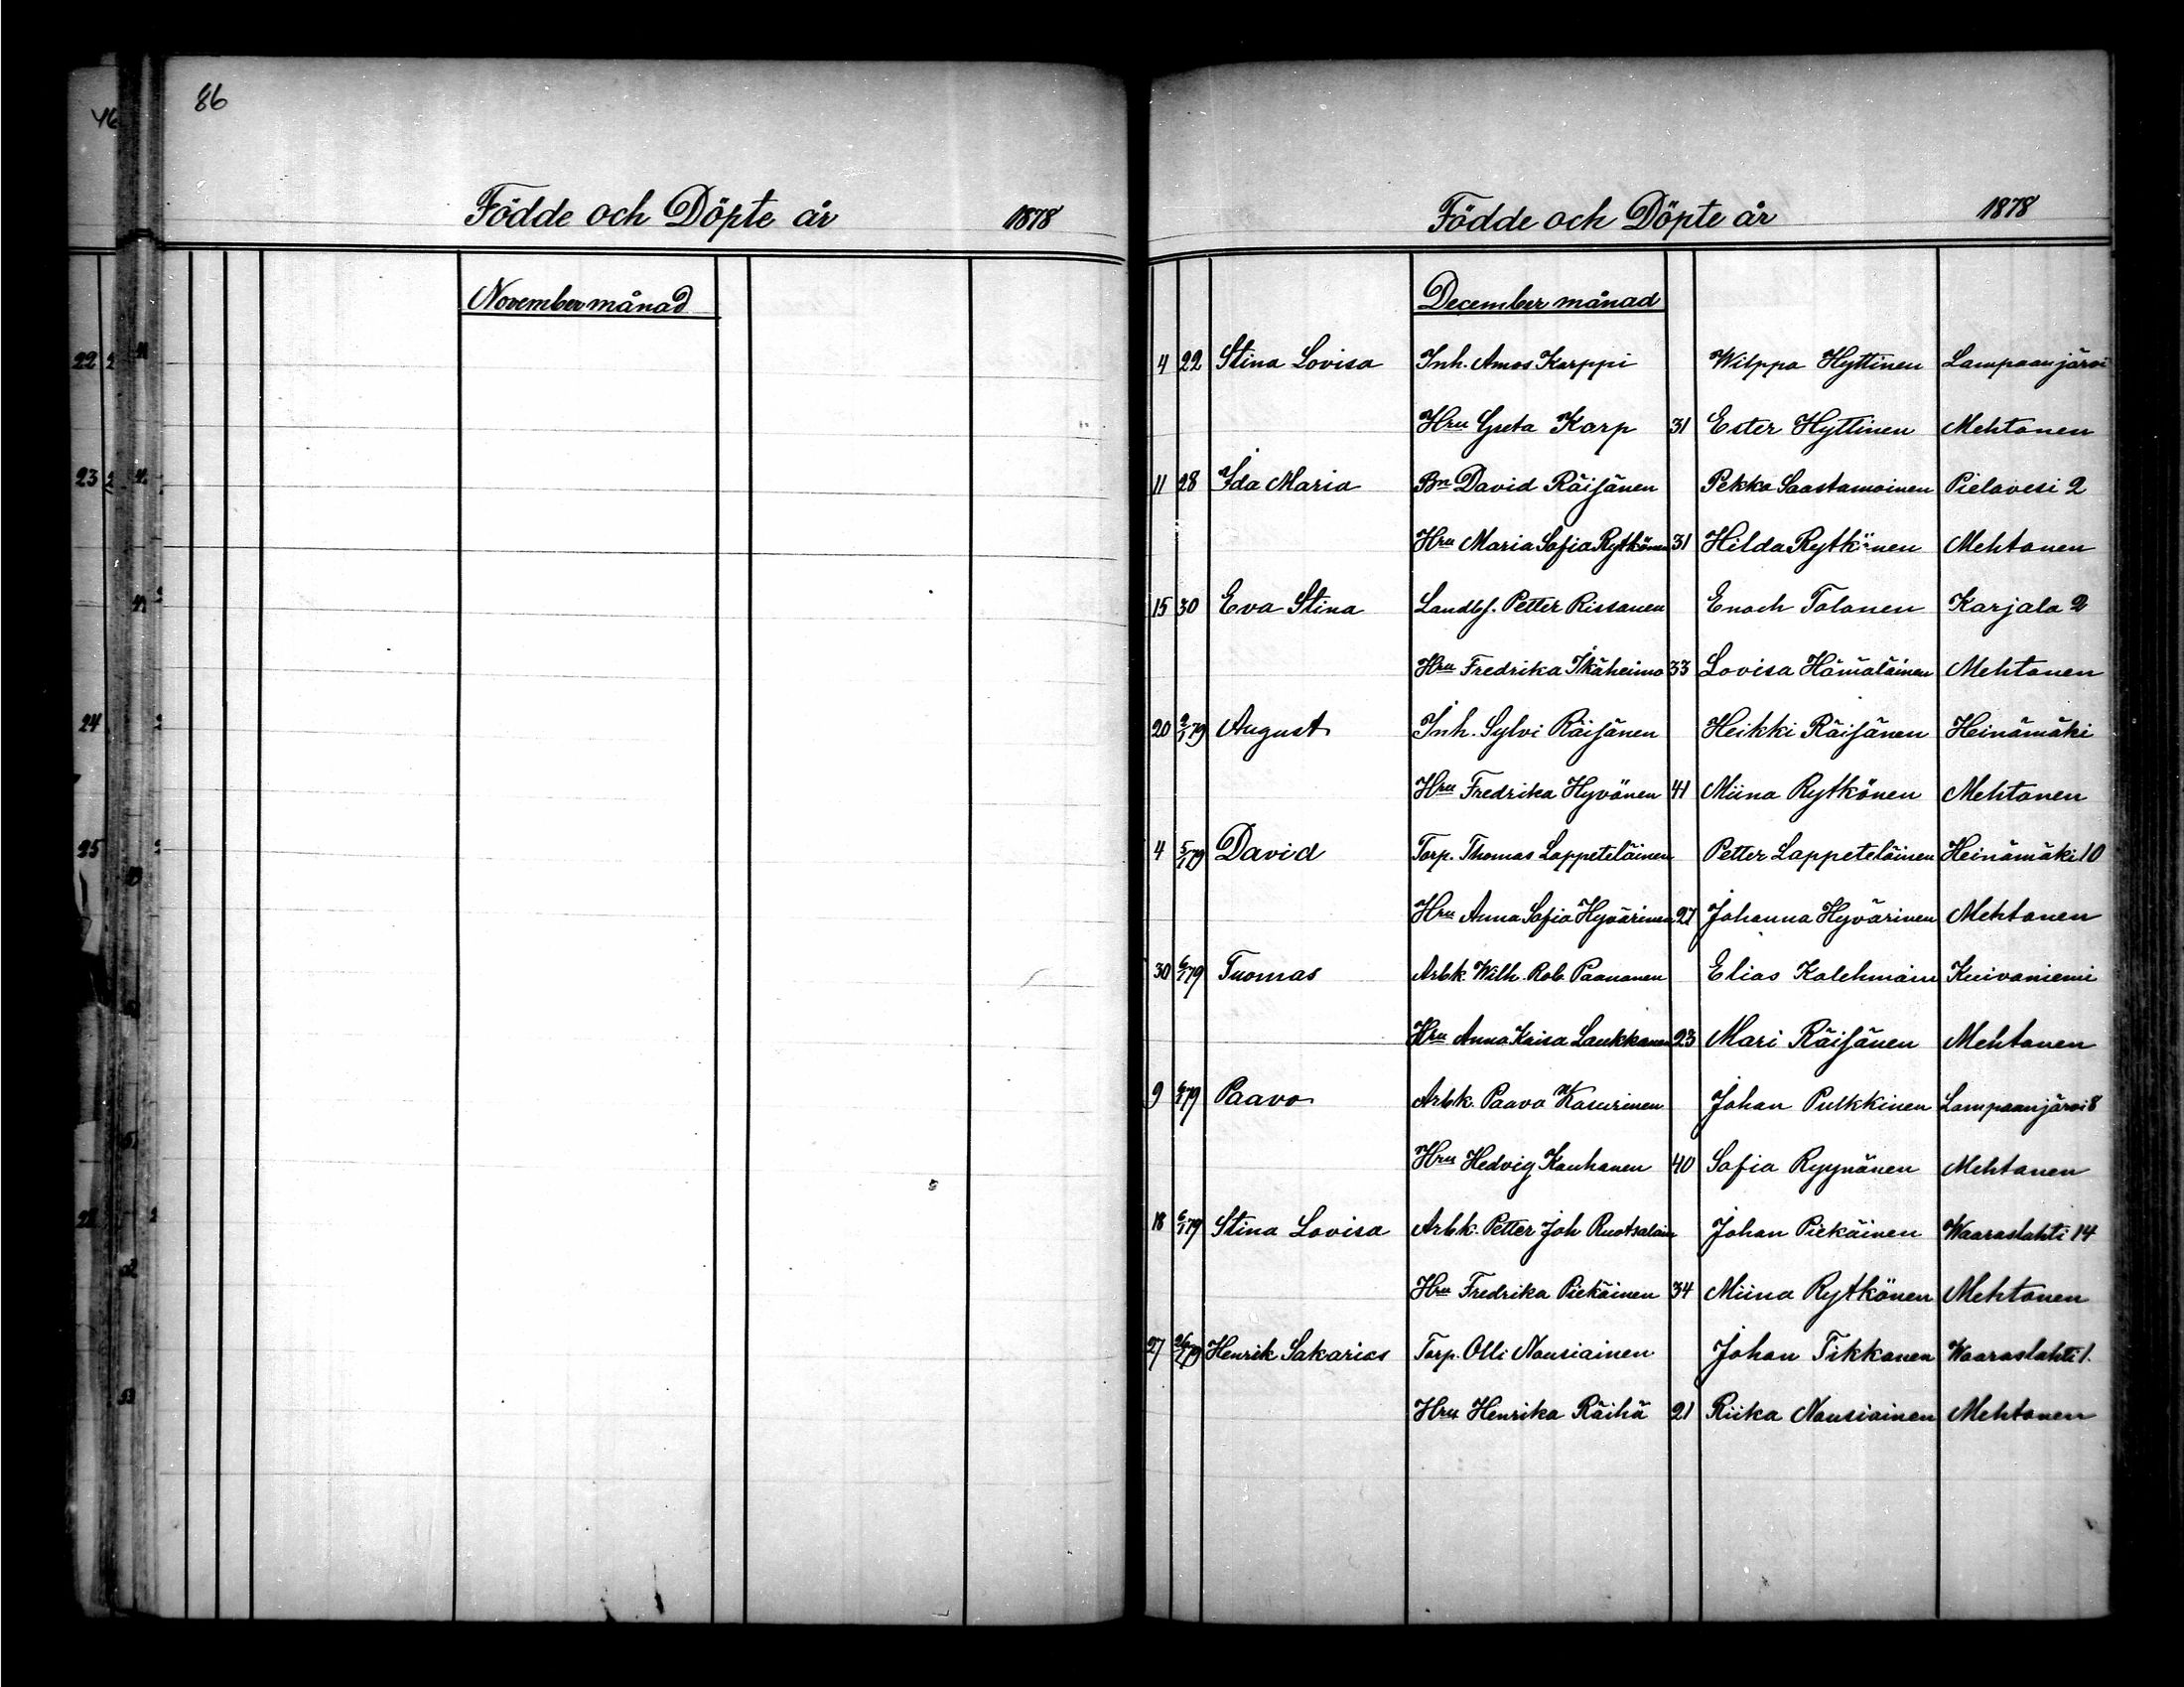 86
46
Födde och Döpte år 1878
November månad
22
23
24
25
Födde och Döpte år 1878
December månad
4 22 Stina Lovisa Inh. Amos Karppi Wilppo Hyttinen Lampaanjärvi
Hru Greta Karp 31 Ester Hyttinen Mehtonen
11 28 Ida Maria Bn David Räisänen Pekka Saastamoinen Pielavesi 2
Hru Maria Sofia Rytkönen 31 Hilda Rytkönen Mehtonen
15 30 Eva Stina Landbf. Petter Rissanen Enoch Tolonen Karjala 2
Hru Fredrika Ikäheimo 33 Lovisa Hämäläinen Mehtonen
20 2/1 79 August Inh. Sylvi Räisänen Heikki Räisänen Heinämäki
Hru Fredrika Hyvönen 41 Miina Rytkönen Mehtonen
4 5/1 79 David Torp. Thomas Lappeteläinen Petter Lappeteläinen Heinämäki 10
Hru Anna Sofia Hyvärinen 27 Johanna Hyvärinen Mehtonen
30 6/1 79 Tuomas Arbk. Wilh. Rob. Paananen Elias Kolehmain Kuivaniemi
Hru Anna Kaisa Laukkanen 23 Mari Räisänen Mehtonen
9 6/1 79 Paavo Arbk. Paavo Kasurinen Johan Pulkkinen Lampaanjärvi 8
Hru Hedvig Kauhanen 40 Sofia Ryynänen Mehtonen
18 6/1 79 Stina Lovisa Arbk. Petter Joh Ruotsalain Johan Piekäinen Waaraslahti 14
Hru Fredrika Piekäinen 34 Miina Rytkönen Mehtonen
27 26/1 79 Henrik Sakarias Torp. Olli Nousiainen Johan Tikkanen Waaraslahti 1.
Hru Henrika Räihä 21 Riika Nousiainen Mehtonen